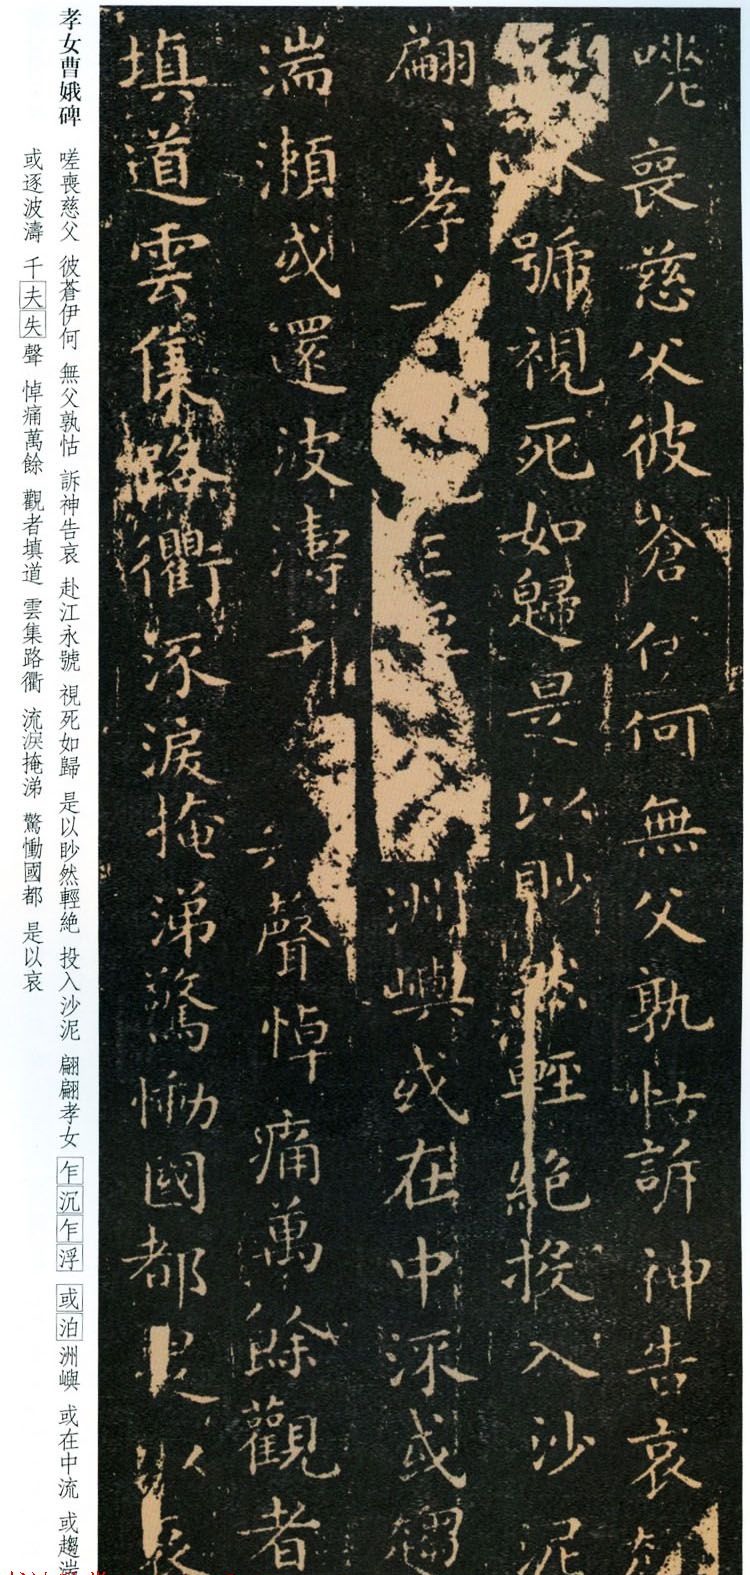 嗟喪慈父彼蒼伊何無父孰怙訴神告哀
永號視死如歸是以眇然輕絕投入沙泥
翩〻孝洲嶼或在中流或趨
湍瀨或還波濤千聲悼痛萬餘觀者
填道雲集路衢流淚掩涕驚慟國都是以哀
孝女曹娥碑
嗟喪慈父 彼蒼伊何 無父孰怙 訴神告哀 赴江永號 視死如歸 是以眇然輕絶 投入沙泥 翩翩孝女 乍沉乍浮 或泊洲嶼 或在中流 或趨湍
或逐波濤 千夫失聲 悼痛萬餘 觀者填道 雲集路衢 流淚掩涕 驚慟國都 是以哀